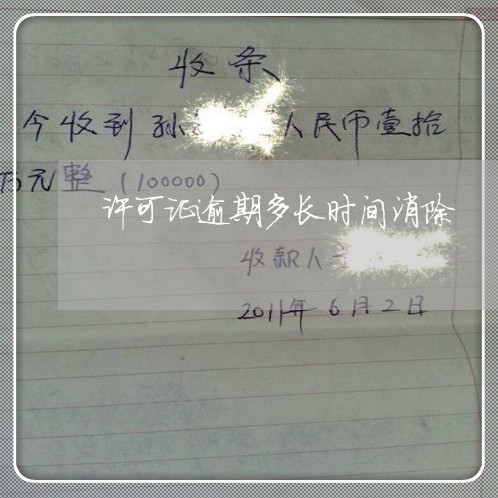 收条
今收到孙 人民币壹拾
万元整(100000)
许可证逾期多长时间消除
收款人
2011年6月2日